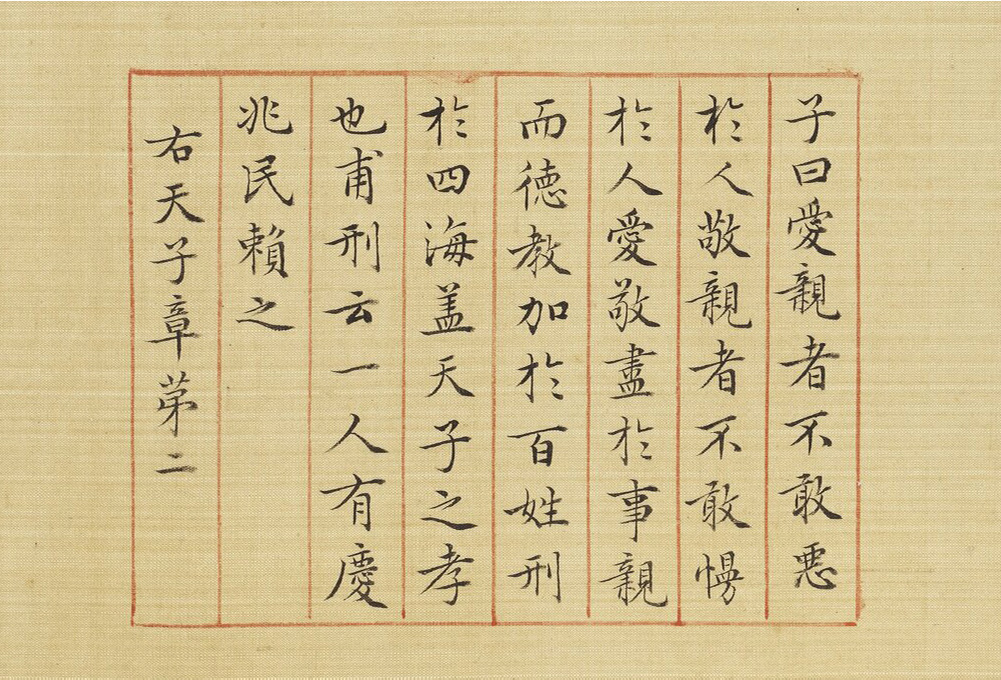 子曰愛親者不敢悪
於人敬親者不敢慢
於人愛敬盡於事親
而徳教加於百姓刑
於四海盖天子之孝
也甫刑云一人有慶
兆民賴之
右天子章苐二